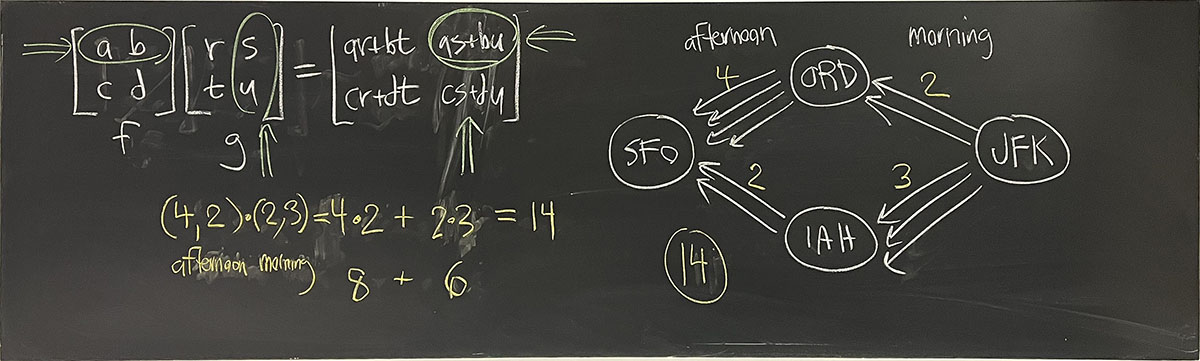 [a b] [r s] = [ar+bt as+bu]
[c d] [t u] [cr+dt cs+du]
f g
(4,2)•(2,3)=4•2 + 2•3 = 14
afternoon morning
8 + 6
afternoon morning
4 ORD 2
SFO JFK
2 3
IAH
14